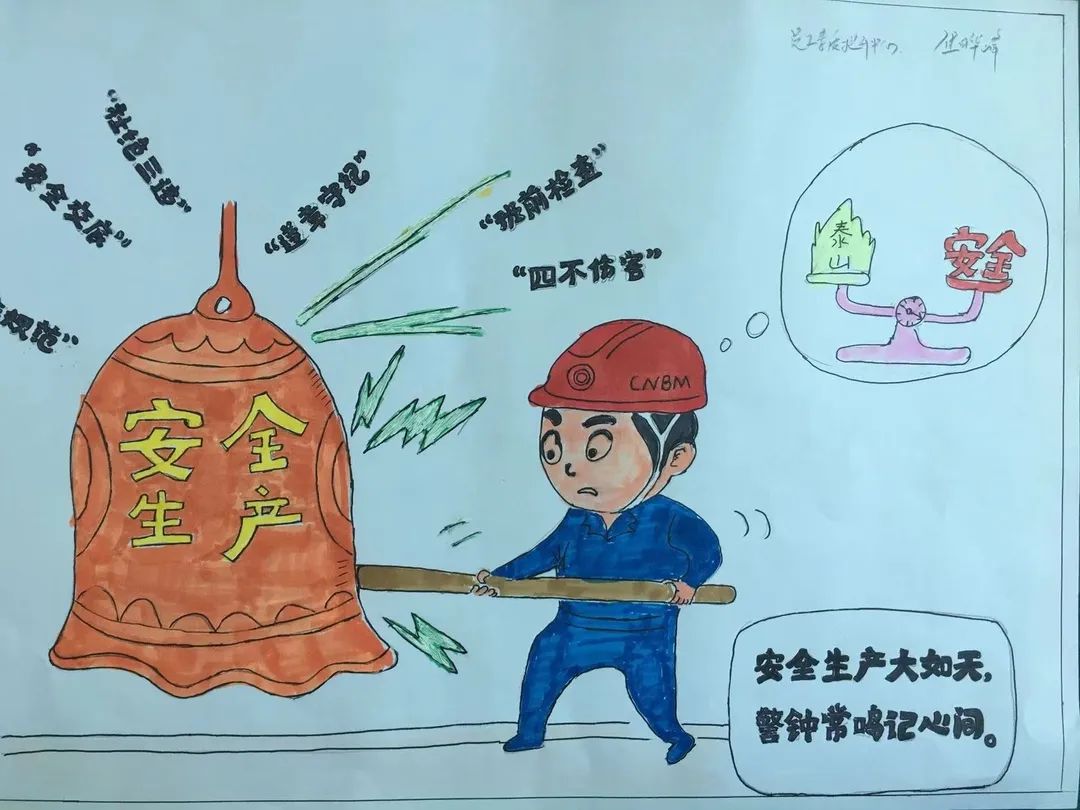 “杜绝三违”
“安全交底”
“遵章守纪”
“班前检查”
“四不伤害”
规范”
泰山
安全
CNBM
安全
生产
安全生产大如天,
警钟常鸣记心间。